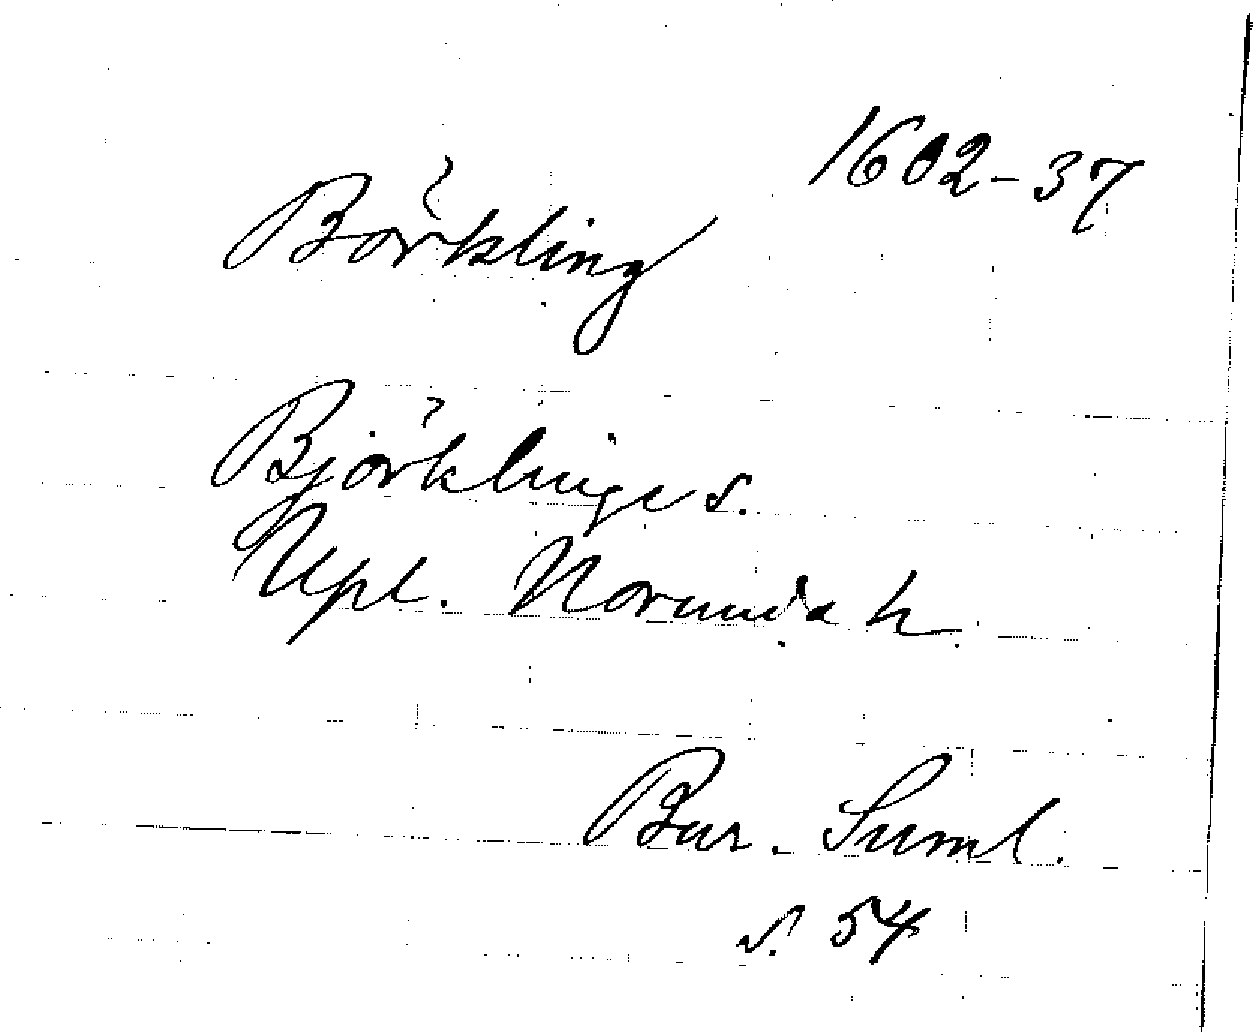 1602-37
Börkling
Björklinge s.
Upl. Norunda h
Bur. Suml.
s. 54